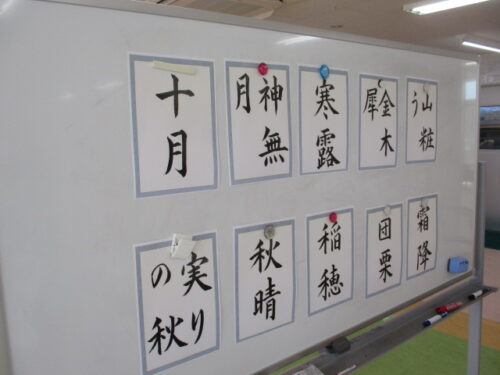 十月
神無
月
寒露
金木
犀
山粧
う
実り
の秋
秋晴
稲穂
団栗
霜降